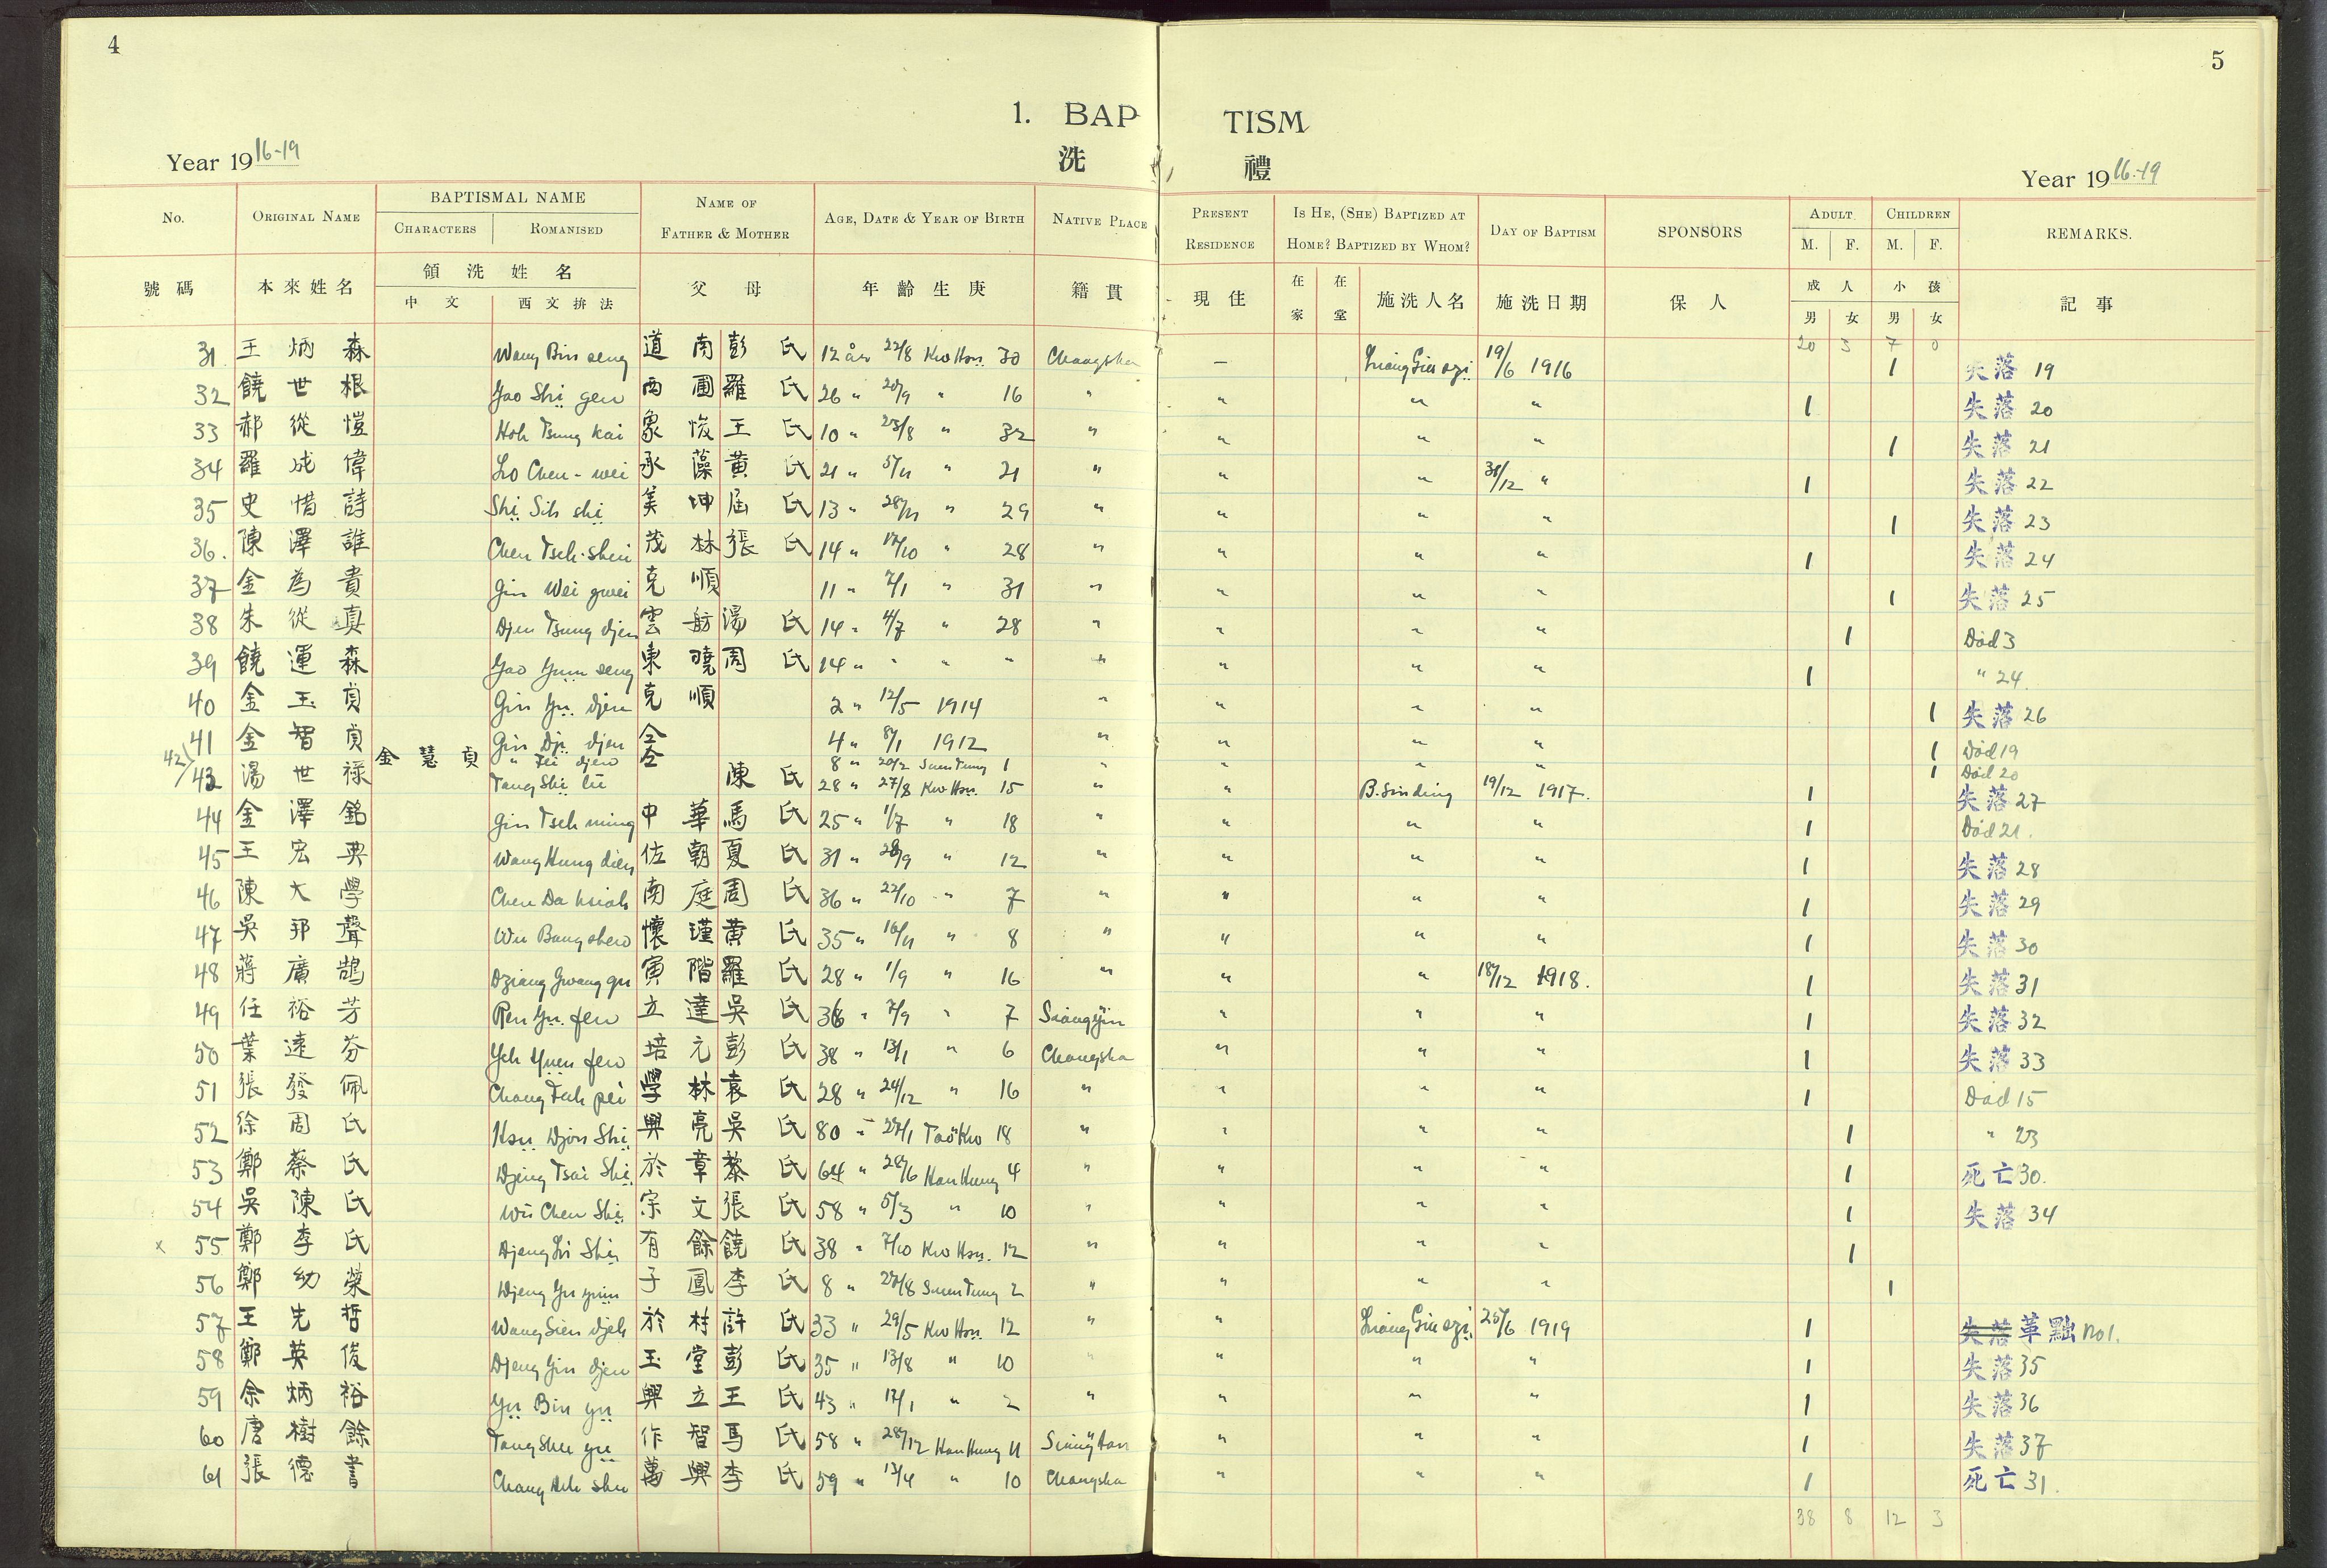 4
5
1. BAP TISM
洗 禮
Year 1916-19
Year 1916-19
No. ORIGINAL NAME BAPTISMAL NAME CHARACTERS ROMANISED NAME OF FATHER & MOTHER AGE, DATE & YEAR OF BIRTH NATIVE PLACE PRESENT RESIDENCE IS HE, (SHE) BAPTIZED AT HOME? BAPTIZED BY WHOM? DAY OF BAPTISM SPONSORS ADULT M. F. CHILDREN M. F. REMARKS.
號碼 本來姓名 領洗姓名 中文 西文拚法 父母 年齡生庚 籍貫 現住 在家 在堂 施洗人名 施洗日期 保人 成人 男 女 小孩 男 女 記事
20 3 7 0
31 王炳森 Wang Bin seng 道南 彭氏 12 år 22/8 Kw Hsu 30 Changsha — 19/6 1916 1 失落 19
32 饒世根 Yao Shi gen 西圃 羅氏 26 " 20/9 " 16 " " " " 1 失落 20
33 郝從愷 Hoh Tsung Kai 象俊 王氏 10 " 23/8 " 32 " " " " 1 失落 21
34 羅成偉 Lo Chen-wei 承藻 黃氏 21 " 5/11 " 21 " " " 31/12 " 1 失落 22
35 史惜詩 Shi Sih shi 美坤 屈氏 13 " 28/11 " 29 " " " " 1 失落 23
36. 陳澤誰 Chen Tseh-shui 茂林 張氏 14 " 17/10 " 28 " " " " 1 失落 24
37 金為貴 Gin Wei gwei 克順 11 " 7/1 " 31 " " " " 1 失落 25
38 朱從真 Djen Tsung djen 雲舫 湯氏 14 " 4/7 " 28 " " " " 1 Död 3
39 饒運森 Yao Yuin seng 東曉 周氏 14 " " " " " " " " 1 " 24.
40 金玉貞 Gin Yu djen 克順 2 " 12/5 1914 " " " " 1 失落 26
41 金智貞 Gin Dji djen 仝 4 " 8/1 1912 " " " 1 Död 19
42 金慧貞 " Fei djen 仝 8 " 20/2 Suen Tung 1 " " " 1 Död 20
43 湯世祿 Tang Shi lu 陳氏 28 " 27/8 Kw Hsu. 15 " " B. Sinding 19/12 1917. 1 失落 27
44 金澤銘 Gin Tseh ming 中華 馬氏 25 " 1/7 " 18 " " " " 1 Död 21.
45 王宏典 Wang Hung dien 佐朝 夏氏 31 " 28/9 " 12 " " " " 1 失落 28
46 陳大學 Chen Da hsioh 南庭 周氏 36 " 22/10 " 7 " " " " 1 失落 29
47 吳邦聲 Wu Bang shen 懷瑾 黃氏 35 " 16/11 " 8 " " " " 1 失落 30
48 蔣廣鵠 Dziang Gwang gu 寅階 羅氏 28 " 1/9 " 16 " " " 18/12 1918. 1 失落 31
49 任裕芳 Ren Yu fen 立達 吳氏 36 " 7/9 " 7 Siangyin " " " 1 失落 32
50 葉遠芬 Yeh Yuen fen 培元 彭氏 38 " 13/1 " 6 Changsha " " " 1 失落 33
51 張發佩 Chang Fah pei 學林 袁氏 28 " 24/12 " 16 " " " " 1 Död 15
52 徐周氏 Hsu Djou Shi 興亮 吳氏 80 " 27/1 Tao Kw 18 " " " " 1 " 23
53 鄭蔡氏 Djeng Tsai Shi 於章 黎氏 64 " 28/6 Han Hung 4 " " " " 1 死亡 30.
54 吳陳氏 Wu Chen Shi 宗文 張氏 58 " 5/3 " 10 " " " " 1 失落 34
x 55 鄭李氏 Djeng Li Shi 有餘 饒氏 38 " 7/10 Kw Hsu. 12 " " " " 1
56 鄭幼榮 Djeng Yu yuin 子鳳 李氏 8 " 27/8 Suen Tung 2 " " " " 1
57 王先哲 Wang Sien djeh 於村 許氏 33 " 29/5 Kw Hsu. 12 " " 25/6 1919 1 失落 革黜 No 1.
58 鄭英俊 Djeng Yin djen 玉堂 彭氏 35 " 13/8 " 10 " " " " 1 失落 35
59 余炳裕 Yu Bin yu 興立 王氏 43 " 17/1 " 2 " " " " 1 失落 36
60 唐樹餘 Tang Shu yu 作智 馬氏 58 " 28/12 Han Hung 11 Siangtan " " " 1 失落 37
61 張德書 Chang Deh shu 萬興 李氏 59 " 13/4 " 10 Changsha " " " 1 死亡 31.
38 8 12 3